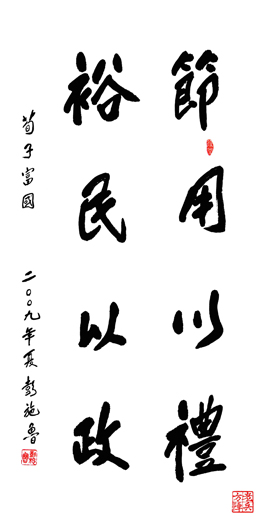 節用以禮
裕民以政
荀子富國
二〇〇九年夏彭施魯